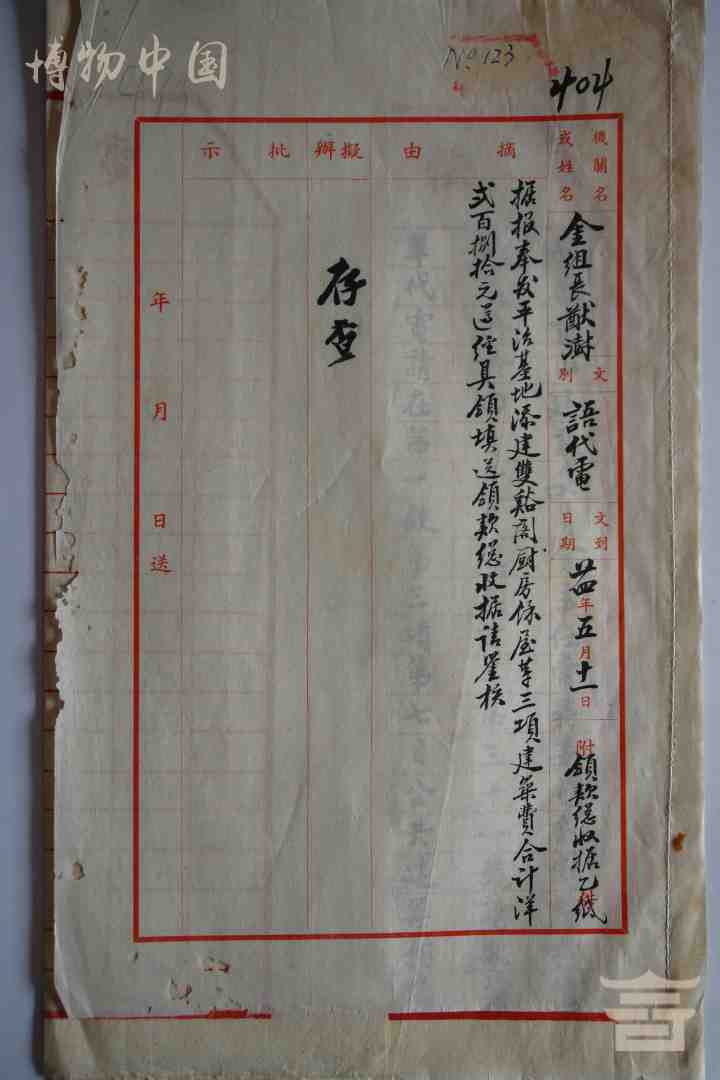 博物中国
No 123
404
機關名或姓名
金組長猷澍
文別
語代電
文到日期
廿四年五月十一日
附
領款總收据乙紙
摘由
据报奉發平治基地添建雙谿閣厨房修屋等三項建築費合計洋
弍百捌拾元遵經具領填送領款總收据請鑒核
擬辦
存查
批示
年月日送